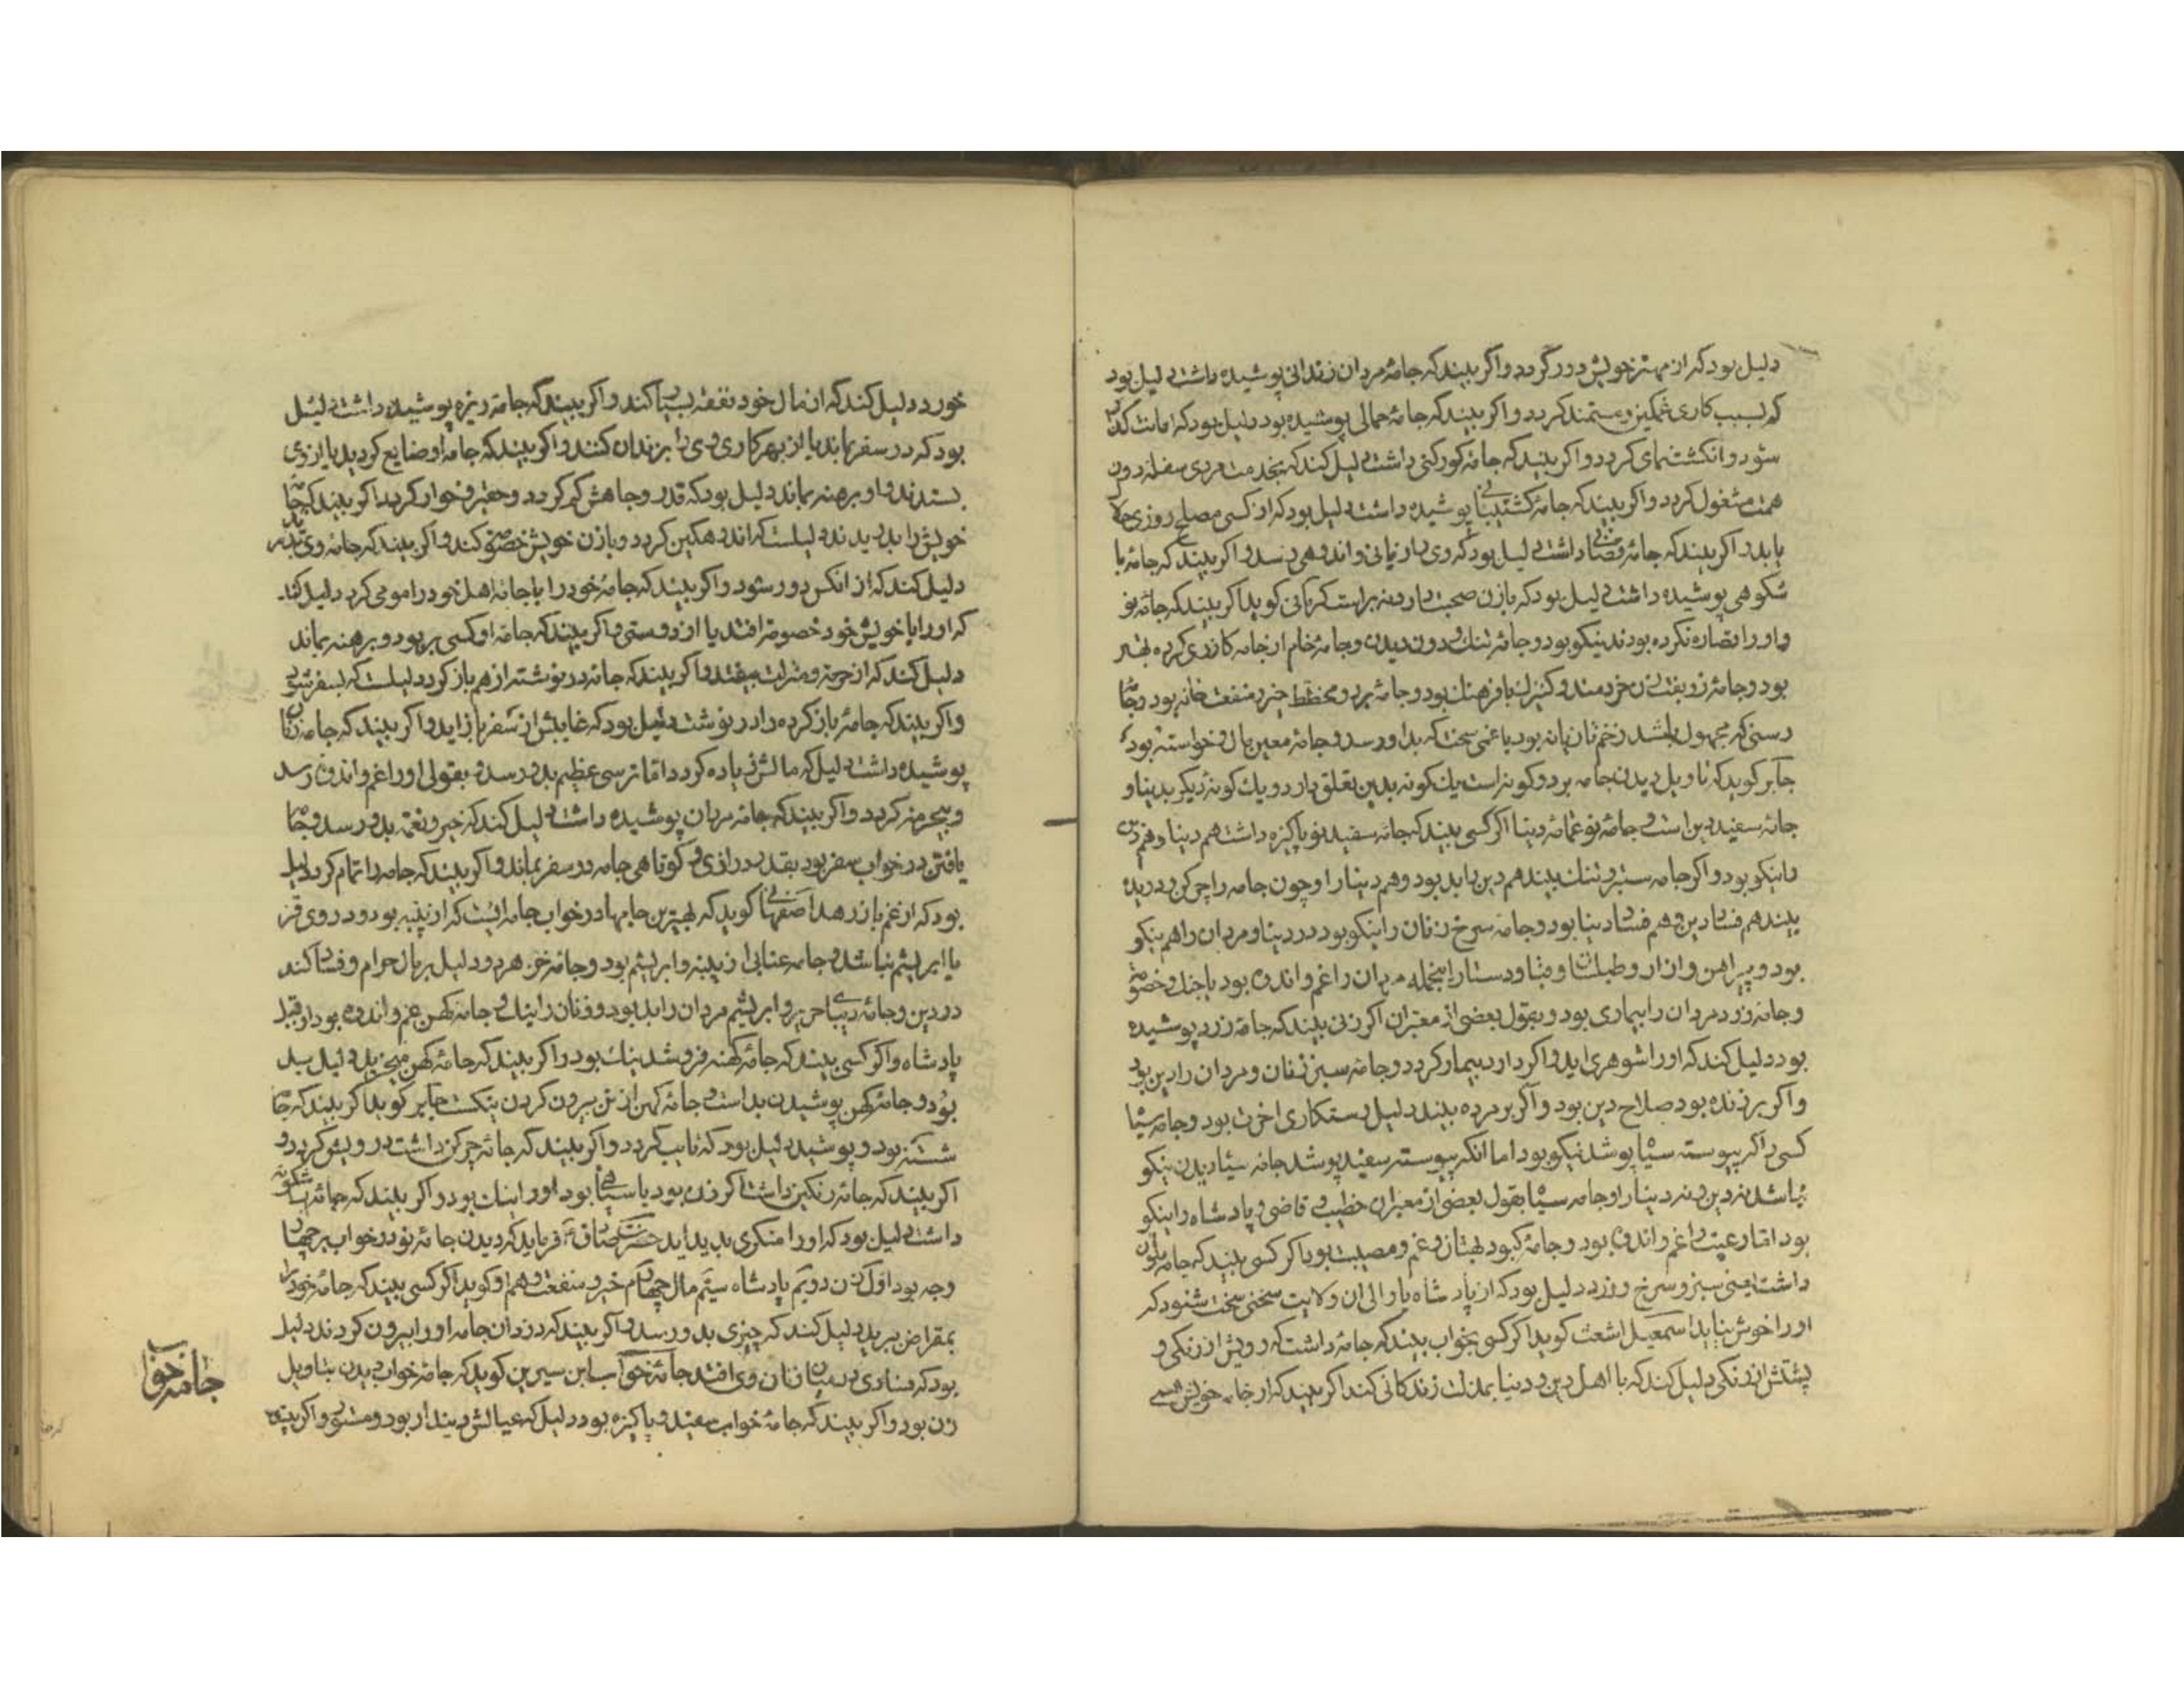 دلیل بود که از مهتر خویش دور گردد و اکر بیند که جامهٔ مردان زندانی پوشیده داشت دلیل بود
که بسبب کاری غمکین و مستمند کردد و اکر بیند که جامهٔ حمالی پوشیده بود دلیل بود که امانت کذار
شود و انکشت نمای کردد و اکر بیند که جامه کورکنی داشت دلیل کند که بخدمت مردی سفله دون
همت مشغول کردد و اکر بیند که جامهٔ کشتیبانی پوشیده داشت دلیل بود که از کسی مصلح روزی حلال
یابد و اکر بیند که جامهٔ قصابی داشت دلیل بود که وی را زیانی و اندوهی رسد و اکر بیند که جامهٔ با
شکوهی پوشیده داشت دلیل بود که با زن صحبت دارد نه براست کرمانی کوید اکر بیند که جامه نو
و او را قصاره نکرده بودند نیکو بود و جامهٔ تنک و دون دیدن و جامهٔ خام از جامه کازری کرده بهتر
بود و جامهٔ زربفت زن خردمند و کنیزک با فرهنک بود و جامه برد و مخطط خیر و منفعت خانه بود و جامه
رسنی که مجهول باشد زخم تازیانه بود یا غمی سخت که بدو رسد و جامه معین مال و خواسته بود
جابر کوید که تاویل دیدن جامه بر دو کونه است یک کونه بدین تعلق دارد و یک کونهٔ دیکر بدنیا و
جامه سفید دین است و جامه نو عمامهٔ دنیا اکر کسی بیند که جامه سفید نو پاکیزه داشت هم دنیا و هم دین
را نیکو بود و اکر جامه ستبر و تنک بیند هم دین را بد بود و هم دنیا را و چون جامه را چرکن و دریده
بیند هم فساد دین و هم فساد دنیا بود و جامه سرخ زنان را نیکو بود در دنیا و مردان را هم نیکو
بود و پیراهن و ازار و طیلسان و قبا و دستار اینجمله مردان را غم و اندوه بود یا جنک و خصومت
و جامه زرد مردان را بیماری بود و بقول بعضی از معبران اکر زنی بیند که جامه زرد پوشیده
بود دلیل کند که او را شوهری اید و اکر دارد بیمار کردد و جامهٔ سبز زنان و مردان را دین بود
و اکر بر زنده بود صلاح دین بود و اکر بر مرده بیند دلیل رستکاری اخرت بود و جامه سیاه
کسی را که پیوسته سیاه پوشد نیکو بود اما انکه پیوسته سفید پوشد جامه سیاه دیدن نیکو
نباشد نه دین و نه دنیا را و جامه سیاه بقول بعضی از معبران خطیب و قاضی و پادشاه را نیکو
بود اما رعیت را غم و اندوه بود و جامهٔ کبود بهتان و غم و مصیبت بود اکر کسی بیند که جامه ملون
داشت یعنی سبز و سرخ و زرد دلیل بود که از پادشاه یا والی ان ولایت سخنی سخت شنود که
او را خوش نیاید اسمعیل اشعث کوید اکر کسی بخواب بیند که جامهٔ داشت که رویش از رنکی و
پشتش از رنکی دلیل کند که با اهل دین و دنیا بمدلت زندکانی کند اکر بیند که از خامه خویش همی
خورد دلیل کند که از مال خود نفقه بسیار کند و اکر بیند که جامه ریزه پوشیده داشت دلیل
بود که در سفر بماند یا از بهر کاری وی را بزندان کنند و اکر بیند که جامه او ضایع کردید یا از وی
بستدند و او برهنه بماند دلیل بود که قدر و جاهش کم کردد و حقیر و خوار کردد اکر بیند که جامه
خویش را بدریدند دلیلست که اندوهکین کردد و با زن خویش خصومت کند و اکر بیند که جامه وی بدرید
دلیل کند که از انکس دور شود و اکر بیند که جامهٔ خود را با جامهٔ اهل خود را مومی کرد دلیل کند
که او را با خویش خود خصومة افتد یا از دوستی و اکر بیند که جامه او کسی بربود و برهنه بماند
دلیل کند که از حرمة و منزلت بیفتد و اکر بیند که جامه در نوشته از هم باز کرد دلیلست که بسفر شود
و اکر بیند که جامهٔ باز کرده را در نوشت دلیل بود که غایبش از سفر باز اید و اکر بیند که جامه زنان
پوشیده داشت دلیل که مالش زیاده کردد اما ترسی عظیم بدو رسد و بقولی او را غم و اندوه رسد
و بیحرمة کردد و اکر بیند که جامهٔ مردان پوشیده داشت دلیل کند که خیر و نعمة بدو رسد و جامه
یافتن در خواب سفر بود بقدر درازی و کوتاهی جامه در سفر بماند و اکر بیند که جامه را تمام کرد دلیل
بود که از غم باز رهد اصفهانی کوید که بهترین جامها در خواب جامه ایست که از پنبه بود و در وی قز
یا ابریشم نباشد و جامه عنابی از پنبه و ابریشم بود و جامه خز هر دو دلیل بر مال حرام و فساد کند
در دین و جامهٔ دیبا و حریر و ابریشم مردان را بد بود و زنان را نیک و جامه کهن غم و اندوه بود از قبل
پادشاه و اکر کسی بیند که جامهٔ کهنه فروشد نیک بود و اکر بیند که جامهٔ کهن میخرید دلیل بد
بود و جامه کهن پوشیدن بد است و جامهٔ کهن از تن بیرون کردن نیکست جابر کوید اکر بیند که جامه
شسته بود و پوشید دلیل بود که تایب کردد و اکر بیند که جامه چرکن داشت درویش کردد و
اکر بیند که جامه رنکین داشت اکر زن بود یا سپاهی بود او را نیک بود و اکر بیند که جامهٔ باشکونه
داشت دلیل بود که او را منکری پدید اید حضرت صادق ع فرماید که دیدن جامهٔ نو در خواب بر چهار
وجه بود اول زن دویم پادشاه سیم مال چهارم خیر و منفعت و هم او کوید اکر کسی بیند که جامهٔ خود را
بمقراض برید دلیل کند که چیزی بدو رسد و اکر بیند که دزدان جامه او را بیرون کردند دلیل
بود که فسادی در میان زنان وی افتد جامهٔ خواب ابن سیرین کوید که جامهٔ خواب دیدن بتاویل
زن بود و اکر بیند که جامهٔ خواب سفید و پاکیزه بود دلیل که عیالش دیندار بود و مستور و اکر بیند
جامه خواب